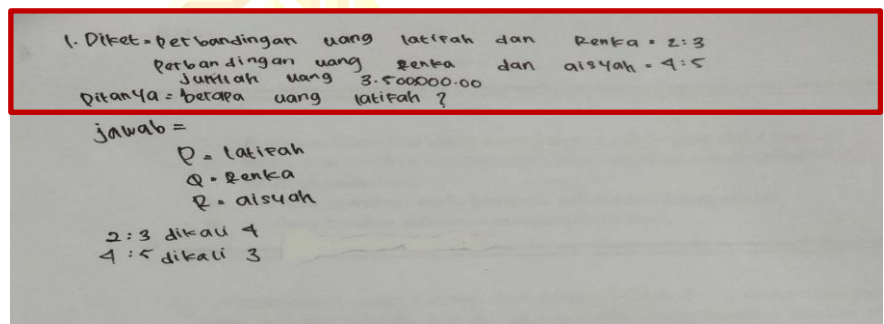 1. Diket = perbandingan uang latifah dan Renka = 2:3
perbandingan uang Renka dan aisyah = 4:5
Jumlah uang 3.500000.00
Ditanya = berapa uang latifah ?
jawab =
P = latifah
Q = Renka
R = aisyah
2:3 dikali 4
4:5 dikali 3